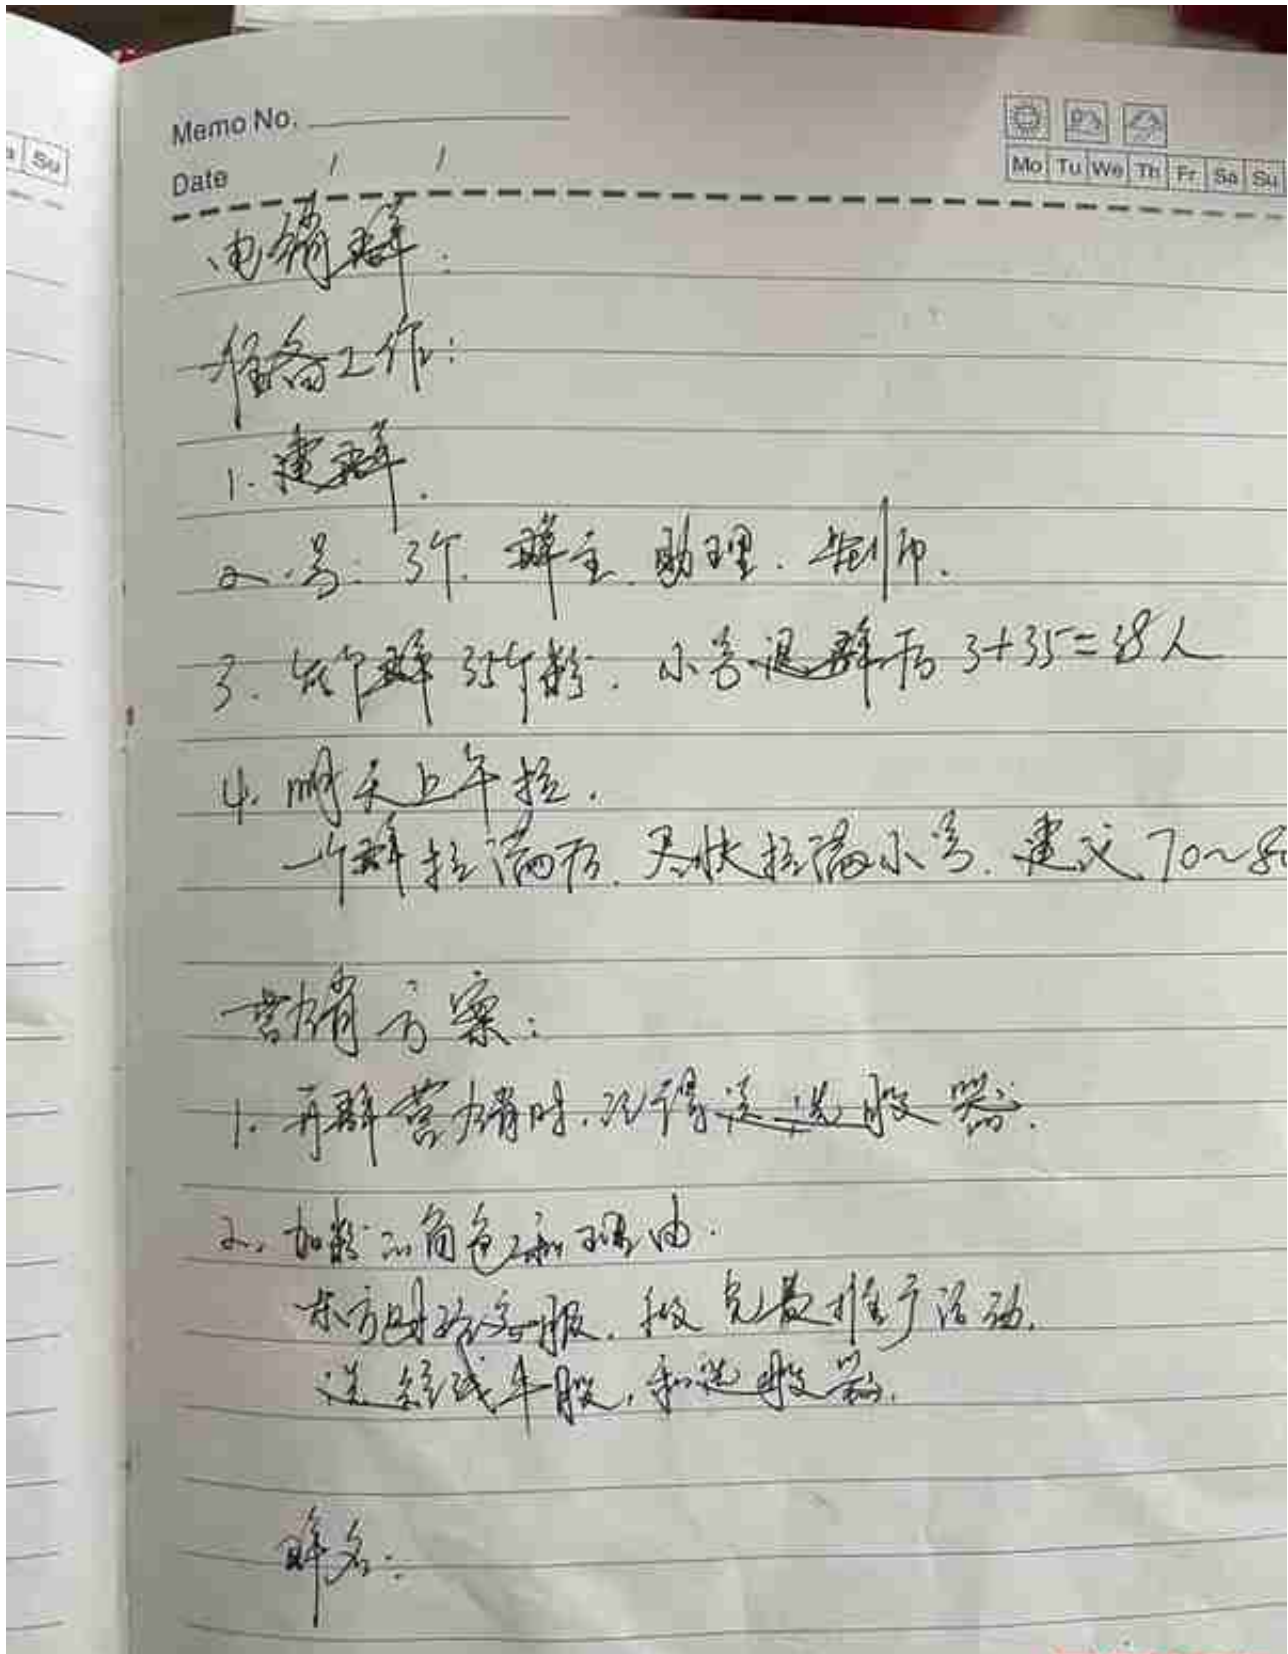 Su
Memo No.
Date / /
Mo Tu We Th Fr Sa Su
电销群:
准备工作:
1. 建群.
2. 号: 3个. 群主. 助理. 老师.
3. 每个群35个粉. 小号退群后 3+35=38人
4. 明天上午拉.
一个群拉满后. 尽快拉满小号. 建议 70~80
营销方案:
1. 再群营销时. 记得送选股器.
2. 加粉的角色和理由.
东方财经客服. 推广活动.
送短线牛股, 和选股器.
群名: